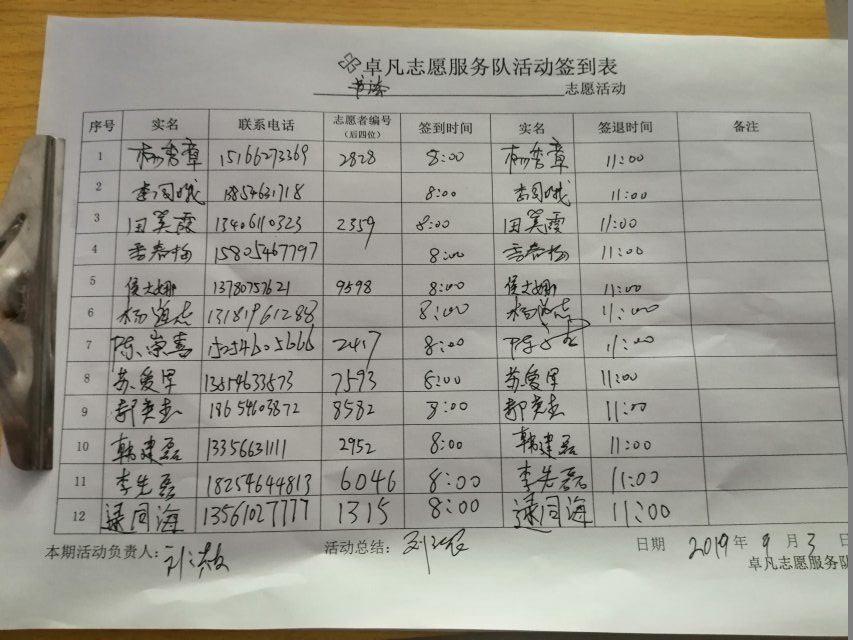 卓凡志愿服务队活动签到表
志愿活动
序号 实名 联系电话 志愿者编号（后四位） 签到时间 实名 签退时间 备注
1 杨秀章 15166273369 2828 8:00 杨秀章 11:00
2 8:00 11:00
3 田美霞 13406110323 2359 8:00 田美霞 11:00
4 李春梅 15805467797 8:00 李春梅 11:00
5 13780757621 9598 8:00 11:00
6 杨道志 13181961288 8:00 杨道志 11:00
7 陈崇喜 15254605666 2417 8:00 11:00
8 苏爱军 7593 8:00 苏爱军 11:00
9 郭英志 18654603872 8582 8:00 郭英志 11:00
10 韩建磊 13356631111 2952 8:00 韩建磊 11:00
11 李先磊 18254644813 6046 8:00 李先磊 11:00
12 逯同海 13561027777 1315 8:00 逯同海 11:00
本期活动负责人： 活动总结： 日期 2019年9月3日
卓凡志愿服务队